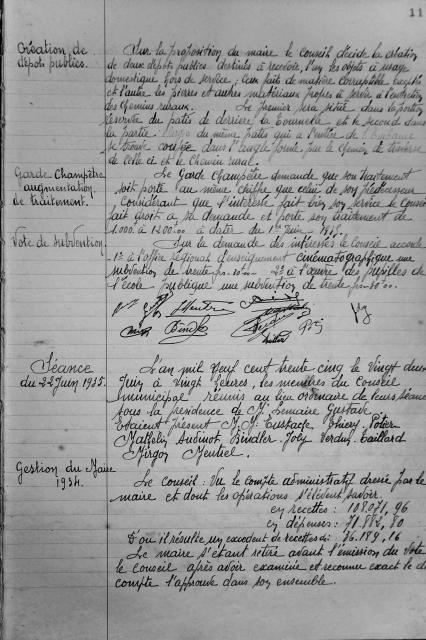 11
Création de
dépôts publics.
Sur la proposition du maire le Conseil décide la création
de deux dépôts publics destinés à recevoir, l'un les objets à usage
domestique hors de service,
et l'autre les pierres et autres matériaux propres à servir à l'entretien
des chemins ruraux. Le premier sera situé dans la portion
réservée du patis de derrière la Tournelle et le second dans
la partie large du même patis qui a l'entrée de
se trouve coupée dans l'angle formé par le chemin de traverse
de celle ci et le chemin rural.
Garde Champêtre
augmentation
de traitement.
Le Garde Champêtre demande que son traitement
soit porté au même chiffre que celui de son prédécesseur
Considérant que l'intéressé fait bien son service le Conseil
fait droit à sa demande et porte son traitement de
1.000 à 1200.00 à dater du 1er Juin 1935
Vote de subvention.
Sur la demande des intéressés le Conseil accorde
1º à l'office régional d'enseignement cinématographique une
subvention de trente frs 30.00 2º à l'œuvre des pupilles de
l'école publique une subvention de trente frs 30.00.
Bindler
Séance
du 22 Juin 1935.
L'an mil neuf cent trente cinq le vingt deux
Juin à vingt heures, les membres du Conseil
municipal réunis au lieu ordinaire de leurs séances
sous la présidence de M. Lemaire Gustave
Etaient présent M.M. Eustache Thiery Potier
Mathelin Audinot Bindler Joly Verdun Caillard
Mirgon Mentiel.
Gestion du Maire
1934.
Le conseil : Vu le compte administratif dressé par le
maire et dont les opérations s'élèvent savoir.
en recettes : 108.071,96
en dépenses: 71.882,80
D'où il résulte un excédent de recettes de: 36.189,16
Le maire s'étant retiré avant l'émission du vote
le conseil après avoir examiné et reconnu exact le dit
compte l'approuve dans son ensemble.